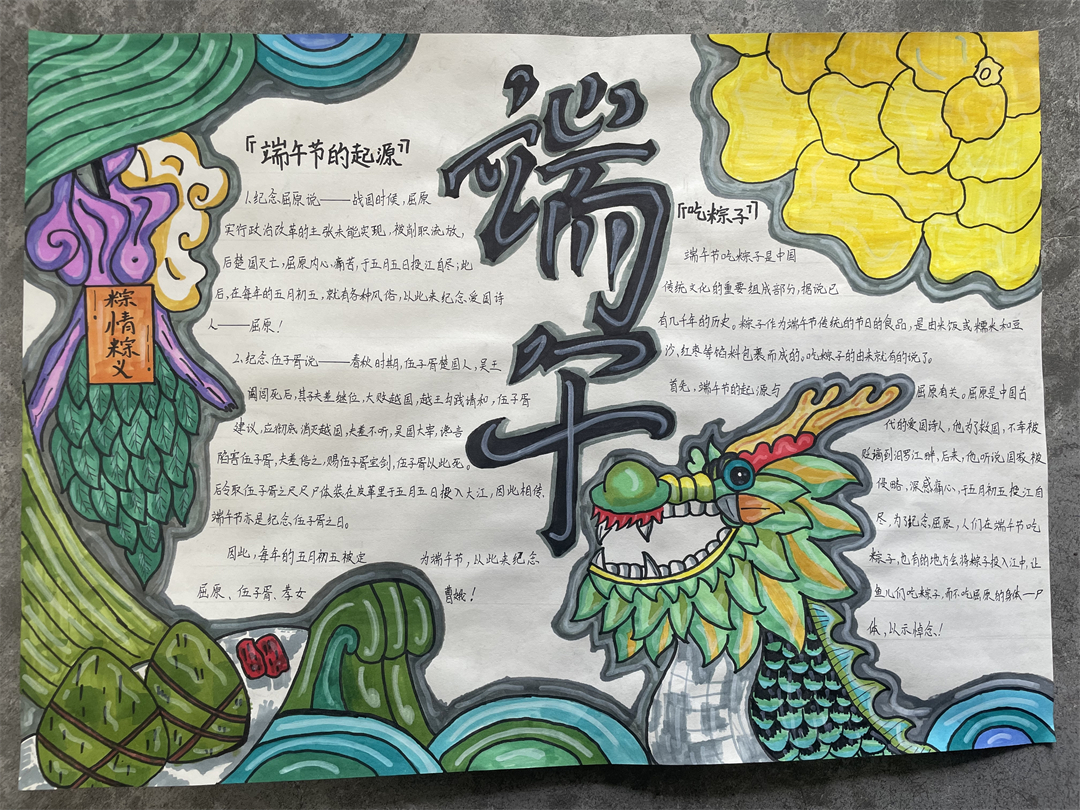 端午
「端午节的起源」
1.纪念屈原说——战国时候,屈原
实行政治改革的主张未能实现,被削职流放,
后楚国灭亡,屈原内心痛苦,于五月五日投江自尽;此
后,在每年的五月初五,就有各种风俗,以此来纪念爱国诗
人——屈原!
2.纪念伍子胥说——春秋时期,伍子胥楚国人,吴王
阖闾死后,其子夫差继位,大败越国,越王勾践请和,伍子胥
建议,应彻底消灭越国,夫差不听,吴国大宰,谗言
陷害伍子胥,夫差信之,赐伍子胥宝剑,伍子胥从此死。
后令取伍子胥之尺尸体装在皮革里于五月五日投入大江,因此相传
端午节亦是纪念伍子胥之日。
因此,每年的五月初五被定 为端午节,从此来纪念
屈原、伍子胥、孝女 曹娥!
「吃粽子」
端午节吃粽子是中国
传统文化的重要组成部分,据说已
有几千年的历史。粽子作为端午节传统的节日的食品,是由米饭或糯米和豆
沙,红枣等馅料包裹而成的。吃粽子的由来就有的说了。
首先,端午节的起源与 屈原有关。屈原是中国古
代的爱国诗人,他为了救国,不幸被
贬谪到汨罗江畔,后来,他听说国家被
侵略,深感痛心,于五月初五投江自
尽,为了纪念屈原,人们在端午节吃
粽子,也有的地方会将粽子投入江中,让
鱼儿们吃粽子,而不吃屈原的身体一尸
体,以示悼念!
粽情粽义